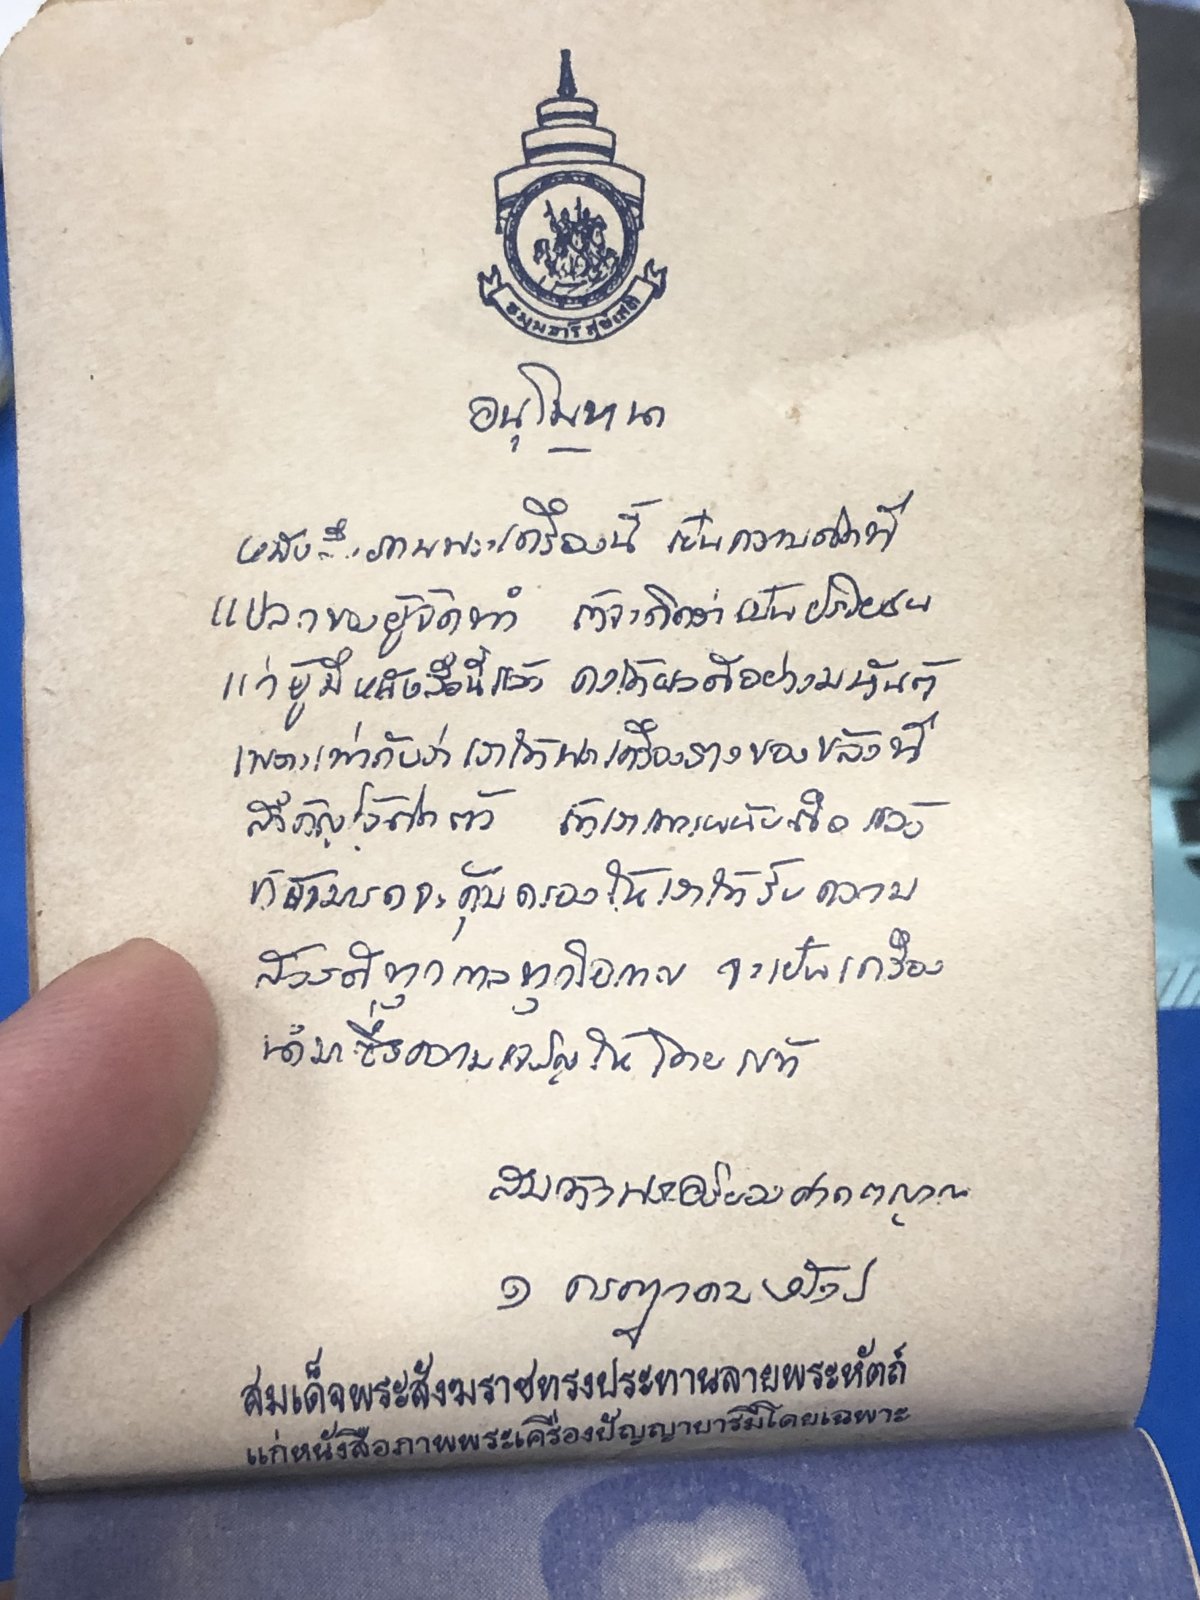 อนุโมทนา
หนังสือภาพพระเครื่องนี้ เป็นความคิดที่
แปลกของผู้จัดทำ ถ้าจะคิดว่าเป็นประโยชน์
แก่ผู้มีหนังสือนี้แล้ว คงได้ผลดีอย่างมหันต์
เพราะเท่ากับว่าเราได้พกเครื่องรางของขลังที่
สำคัญไว้กับตัว ถ้าเรา แล้ว
ก็สามารถจะคุ้มครองให้เราได้รับความ
สวัสดีทุกกาลทุกโอกาส จะเป็นเครื่อง
นำมาซึ่งความเจริญให้โดยแท้
สมเด็จพระอริยวงศาคตญาณ
๑ กรกฎาคม
สมเด็จพระสังฆราชทรงประทานลายพระหัตถ์
แก่หนังสือภาพพระเครื่องปัญญาบารมีโดยเฉพาะ